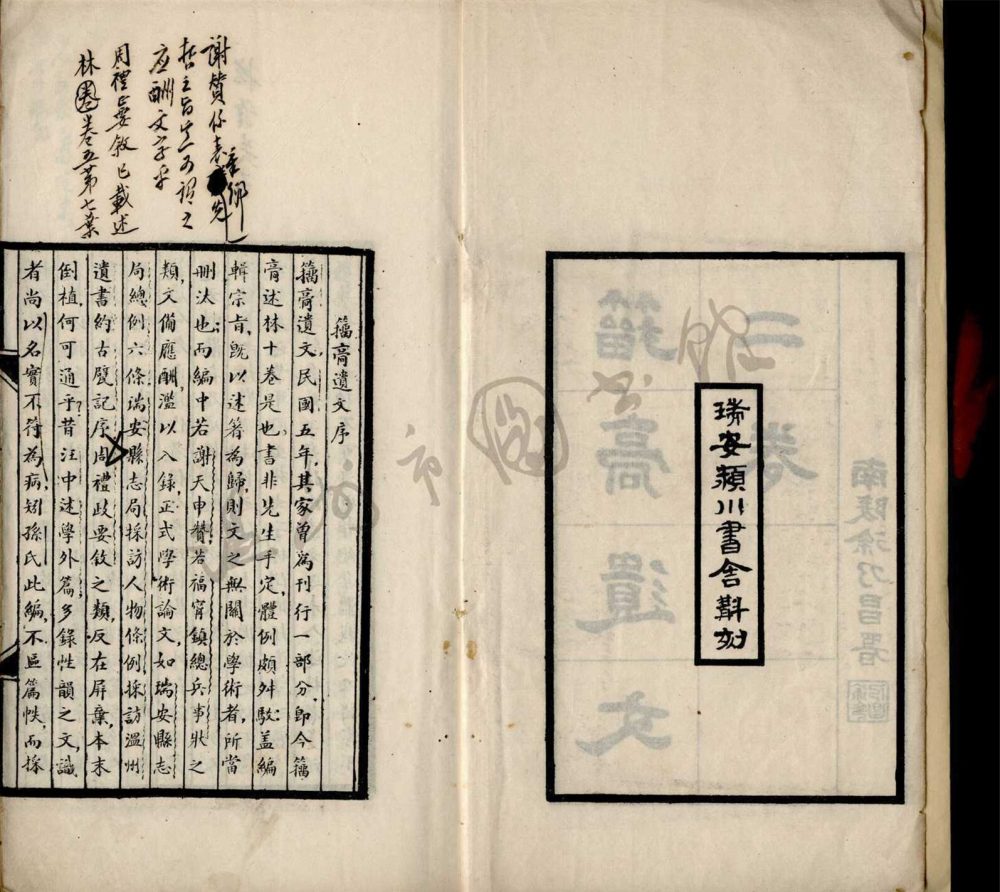 瑞安頴川書舍斠刻
籀膏遺文
三卷
南陵徐乃昌署
籀膏遺文序
籀膏遺文民國五年其家曾為刊行一部分即今籀
膏述林十卷是也書非先生手定體例頗舛駁蓋編
輯宗旨既以述著為歸則文之無關於學術者所當
刪汰也而編中若謝天申贊若福甯鎮總兵事狀之
類文備應酬濫以入錄正式學術論文如瑞安縣志
局總例六條瑞安縣志局採訪人物條例採訪溫州
遺書約古甓記序周禮政要敘之類反在屏棄本末
倒植何可通乎昔汪中述學外篇多錄性韻之文識
者尚以名實不符為病矧孫氏此編不區篇帙而採
謝贊係表章鄉先
哲主旨豈可謂之
應酬文字乎
周禮政要敘已載述
林卷五第七葉
市圖